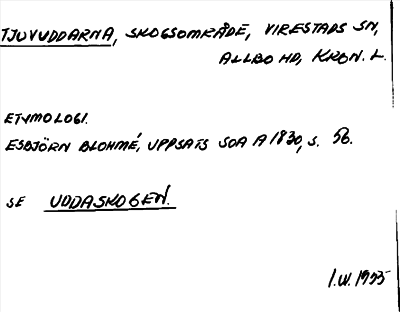 TJUVUDDARNA, SKOGSOMRÅDE, VIRESTADS SN,
ALLBO HD, KRON. L.
ETYMOLOGI.
ESBJÖRN BLOHMÉ, UPPSATS SOA A 1830, S. 56.
SE UDDASKOGEN.
I.W. 1955